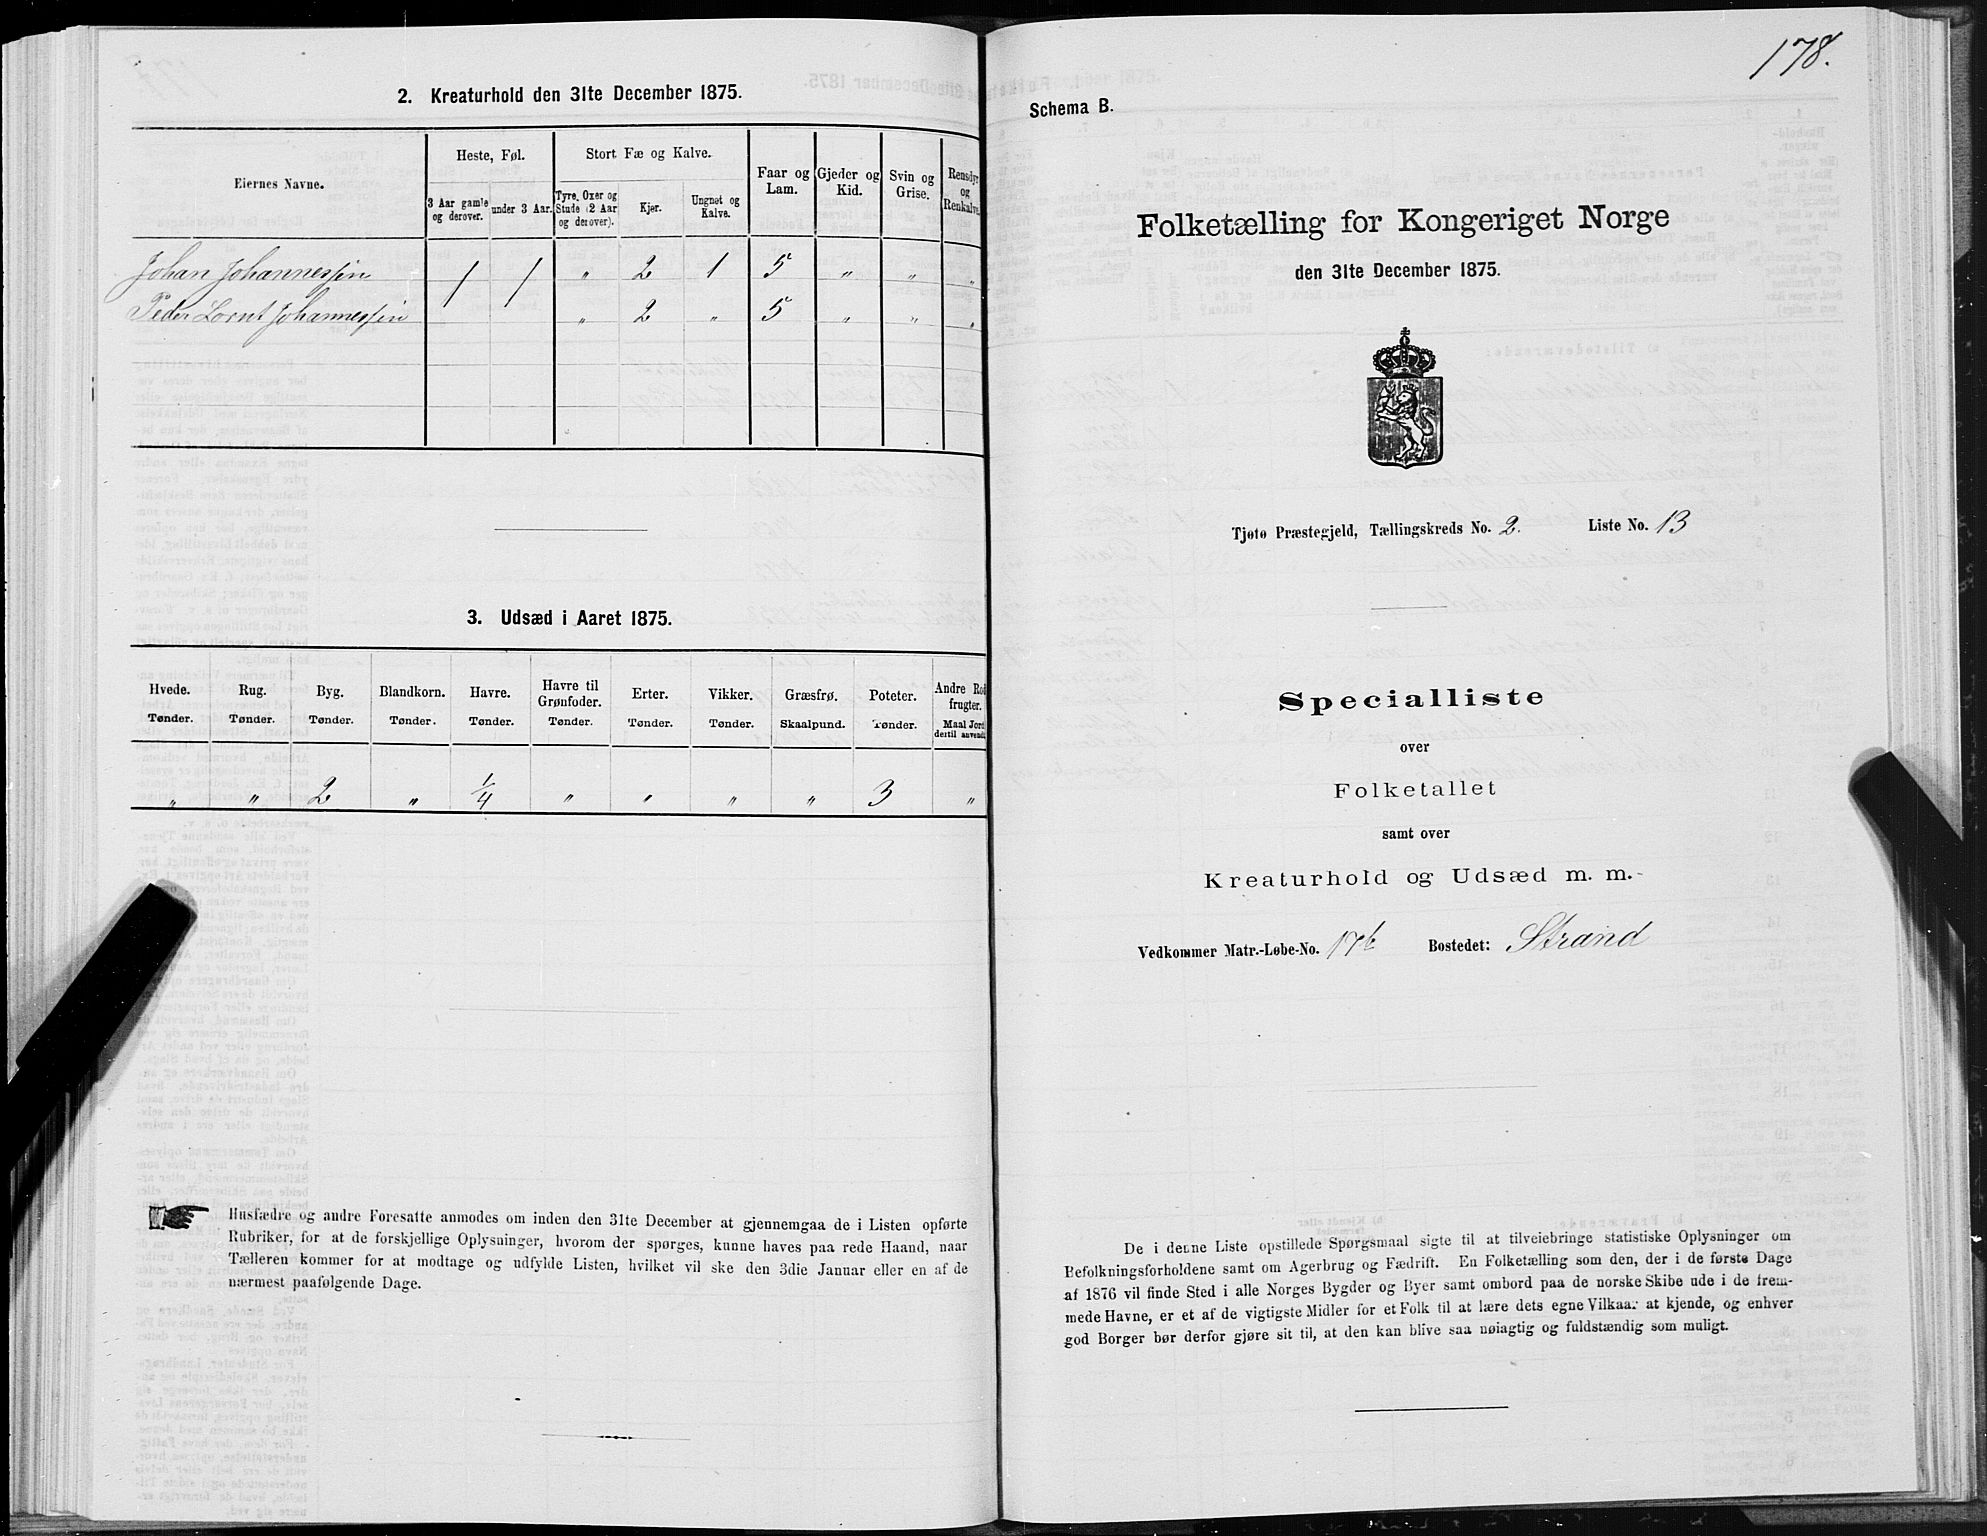 2. Kreaturhold den 31te December 1875.
Eiernes Navne.
Heste, Føl.
Stort Fæ og Kalve.
Faar og Lam.
Gjeder og Kid.
Svin og Grise.
Rensdyr og Renkalve.
3 Aar gamle og derover.
under 3 Aar.
Tyre, Oxer og Stude (2 Aar og derover).
Kjer.
Ungnøt og Kalve.
Johan Johannessen 1 1 " 2 1 5 " " "
Peder Lornt Johannessen " 2 " 5 " " "
3. Udsæd i Aaret 1875.
Hvede. Rug. Byg. Blandkorn. Havre. Havre til Grønfoder. Erter. Vikker. Græsfrø. Poteter. Andre Rodfrugter.
Tønder. Tønder. Tønder. Tønder. Tønder. Tønder. Tønder. Tønder. Skaalpund. Tønder. Maal Jord dertil anvendt.
" " 2 " 1/4 " " " " 3 "
Husfædre og andre Foresatte anmodes om inden den 31te December at gjennemgaa de i Listen opførte
Rubriker, for at de forskjellige Oplysninger, hvorom der spørges, kunne haves paa rede Haand, naar
Tælleren kommer for at modtage og udfylde Listen, hvilket vil ske den 3die Januar eller en af de
nærmest paafølgende Dage.
178.
Schema B.
Folketælling for Kongeriget Norge
den 31te December 1875.
Tjøtø Præstegjeld, Tællingskreds No. 2. Liste No. 13
Specialliste
over
Folketallet
samt over
Kreaturhold og Udsæd m. m.
Vedkommer Matr.-Løbe-No. 17b Bostedet: Strand
De i denne Liste opstillede Spørgsmaal sigte til at tilveiebringe statistiske Oplysninger om
Befolkningsforholdene samt om Agerbrug og Fædrift. En Folketælling som den, der i de første Dage
af 1876 vil finde Sted i alle Norges Bygder og Byer samt ombord paa de norske Skibe ude i de frem-
mede Havne, er et af de vigtigste Midler for et Folk til at lære dets egne Vilkaar at kjende, og enhver
god Borger bør derfor gjøre sit til, at den kan blive saa nøiagtig og fuldstændig som muligt.